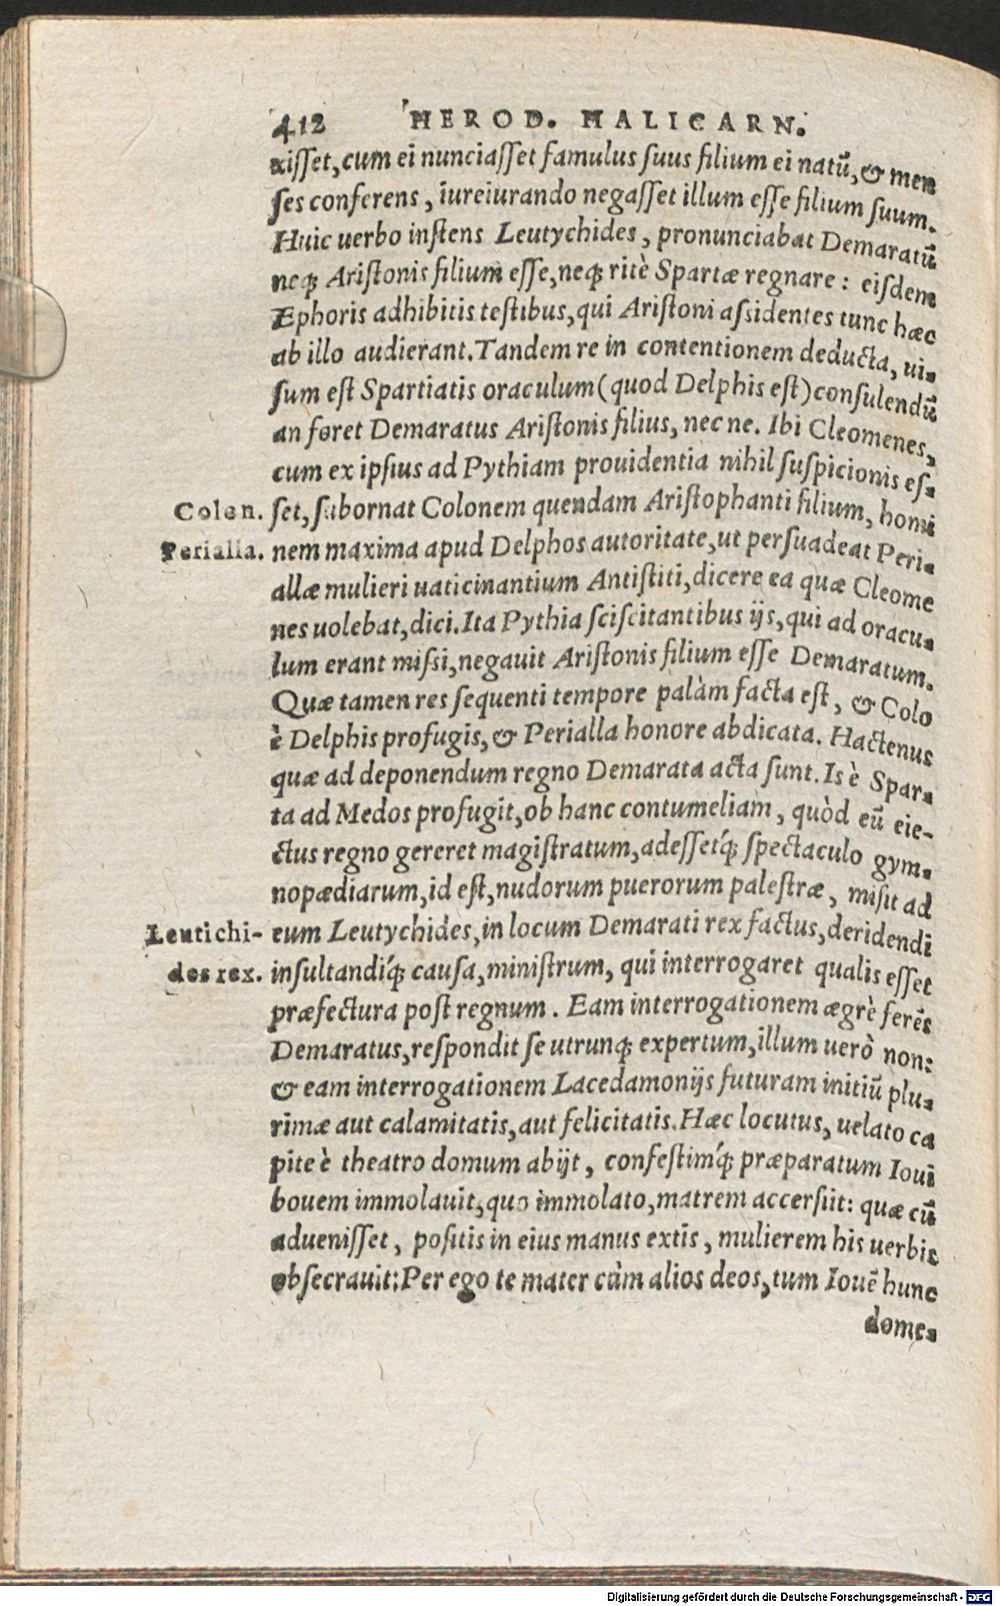 412 HEROD. HALICARN.
xiſſet, cum ei nunciaſſet famulus ſuus filium ei natũ, & men
ſes conferens, iureiurando negaſſet illum eſſe filium ſuum.
Huic uerbo inſtens Leutychides, pronunciabat Demaratũ
neq; Ariſtonis filium eſſe, neq; ritè Spartæ regnare: eiſdem
Ephoris adhibitis teſtibus, qui Ariſtoni aſsidentes tunc hæc
ab illo audierant. Tandem re in contentionem deducta, ui-
ſum eſt Spartiatis oraculum (quod Delphis eſt) conſulendũ
an foret Demaratus Ariſtonis filius, nec ne. Ibi Cleomenes,
cum ex ipſius ad Pythiam prouidentia nihil ſuſpicionis eſ-
Colon. ſet, ſubornat Colonem quendam Ariſtophanti filium, homi
Perialla. nem maxima apud Delphos autoritate, ut perſuadeat Peri-
allæ mulieri uaticinantium Antiſtiti, dicere ea quæ Cleome
nes uolebat, dici. Ita Pythia ſciſcitantibus ijs, qui ad oracu-
lum erant miſsi, negauit Ariſtonis filium eſſe Demaratum.
Quæ tamen res ſequenti tempore palàm facta eſt, & Colo
è Delphis profugis, & Perialla honore abdicata. Hactenus
quæ ad deponendum regno Demarata acta ſunt. Is è Spar-
ta ad Medos profugit, ob hanc contumeliam, quòd eũ eie-
ctus regno gereret magiſtratum, adeſſetq́; ſpectaculo gym-
nopædiarum, id eſt, nudorum puerorum paleſtræ, miſit ad
Leutichi- eum Leutychides, in locum Demarati rex factus, deridendi
des rex. inſultandiq́; cauſa, miniſtrum, qui interrogaret qualis eſſet
præfectura poſt regnum. Eam interrogationem ægrè ferẽs
Demaratus, reſpondit ſe utrunq; expertum, illum uerò non:
& eam interrogationem Lacedamonijs futuram initiũ plu-
rimæ aut calamitatis, aut felicitatis. Hæc locutus, uelato ca
pite è theatro domum abijt, confeſtimq́; præparatum Ioui
bouem immolauit, quo immolato, matrem accerſiit: quæ cũ
adueniſſet, poſitis in eius manus extis, mulierem his uerbis
obſecrauit: Per ego te mater cùm alios deos, tum Iouẽ hunc
domeſ-
Digitalisierung gefördert durch die Deutsche Forschungsgemeinschaft - DFG